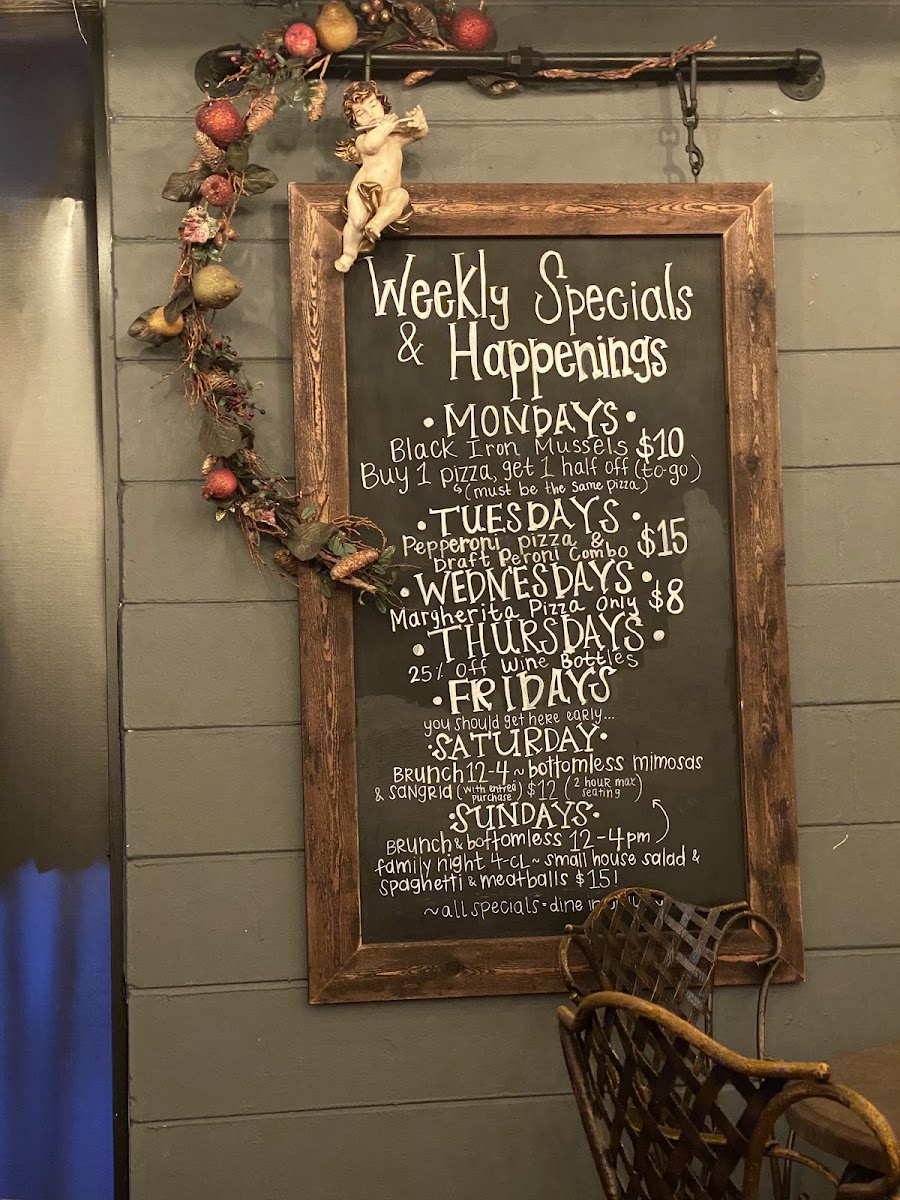 Weekly Specials
& Happenings
• MONDAYS •
Black Iron Mussels $10
Buy 1 pizza, get 1 half off (to-go)
(must be the same pizza)
• TUESDAYS •
Pepperoni pizza & $15
Draft Peroni Combo
• WEDNESDAYS •
Margherita Pizza Only $8
• THURSDAYS •
25% Off Wine Bottles
• FRIDAYS
you should get here early...
•SATURDAY•
BRunch 12-4 ~ bottomless mimosas
& SANGRIA (with entreé purchase) $12 (2 houR max seating)
•SUNDAYS•
BRUnch & bottomless 12-4pm
family night 4-CL ~ small house salad &
spaghetti & meatballs $15!
~all specials = dine in